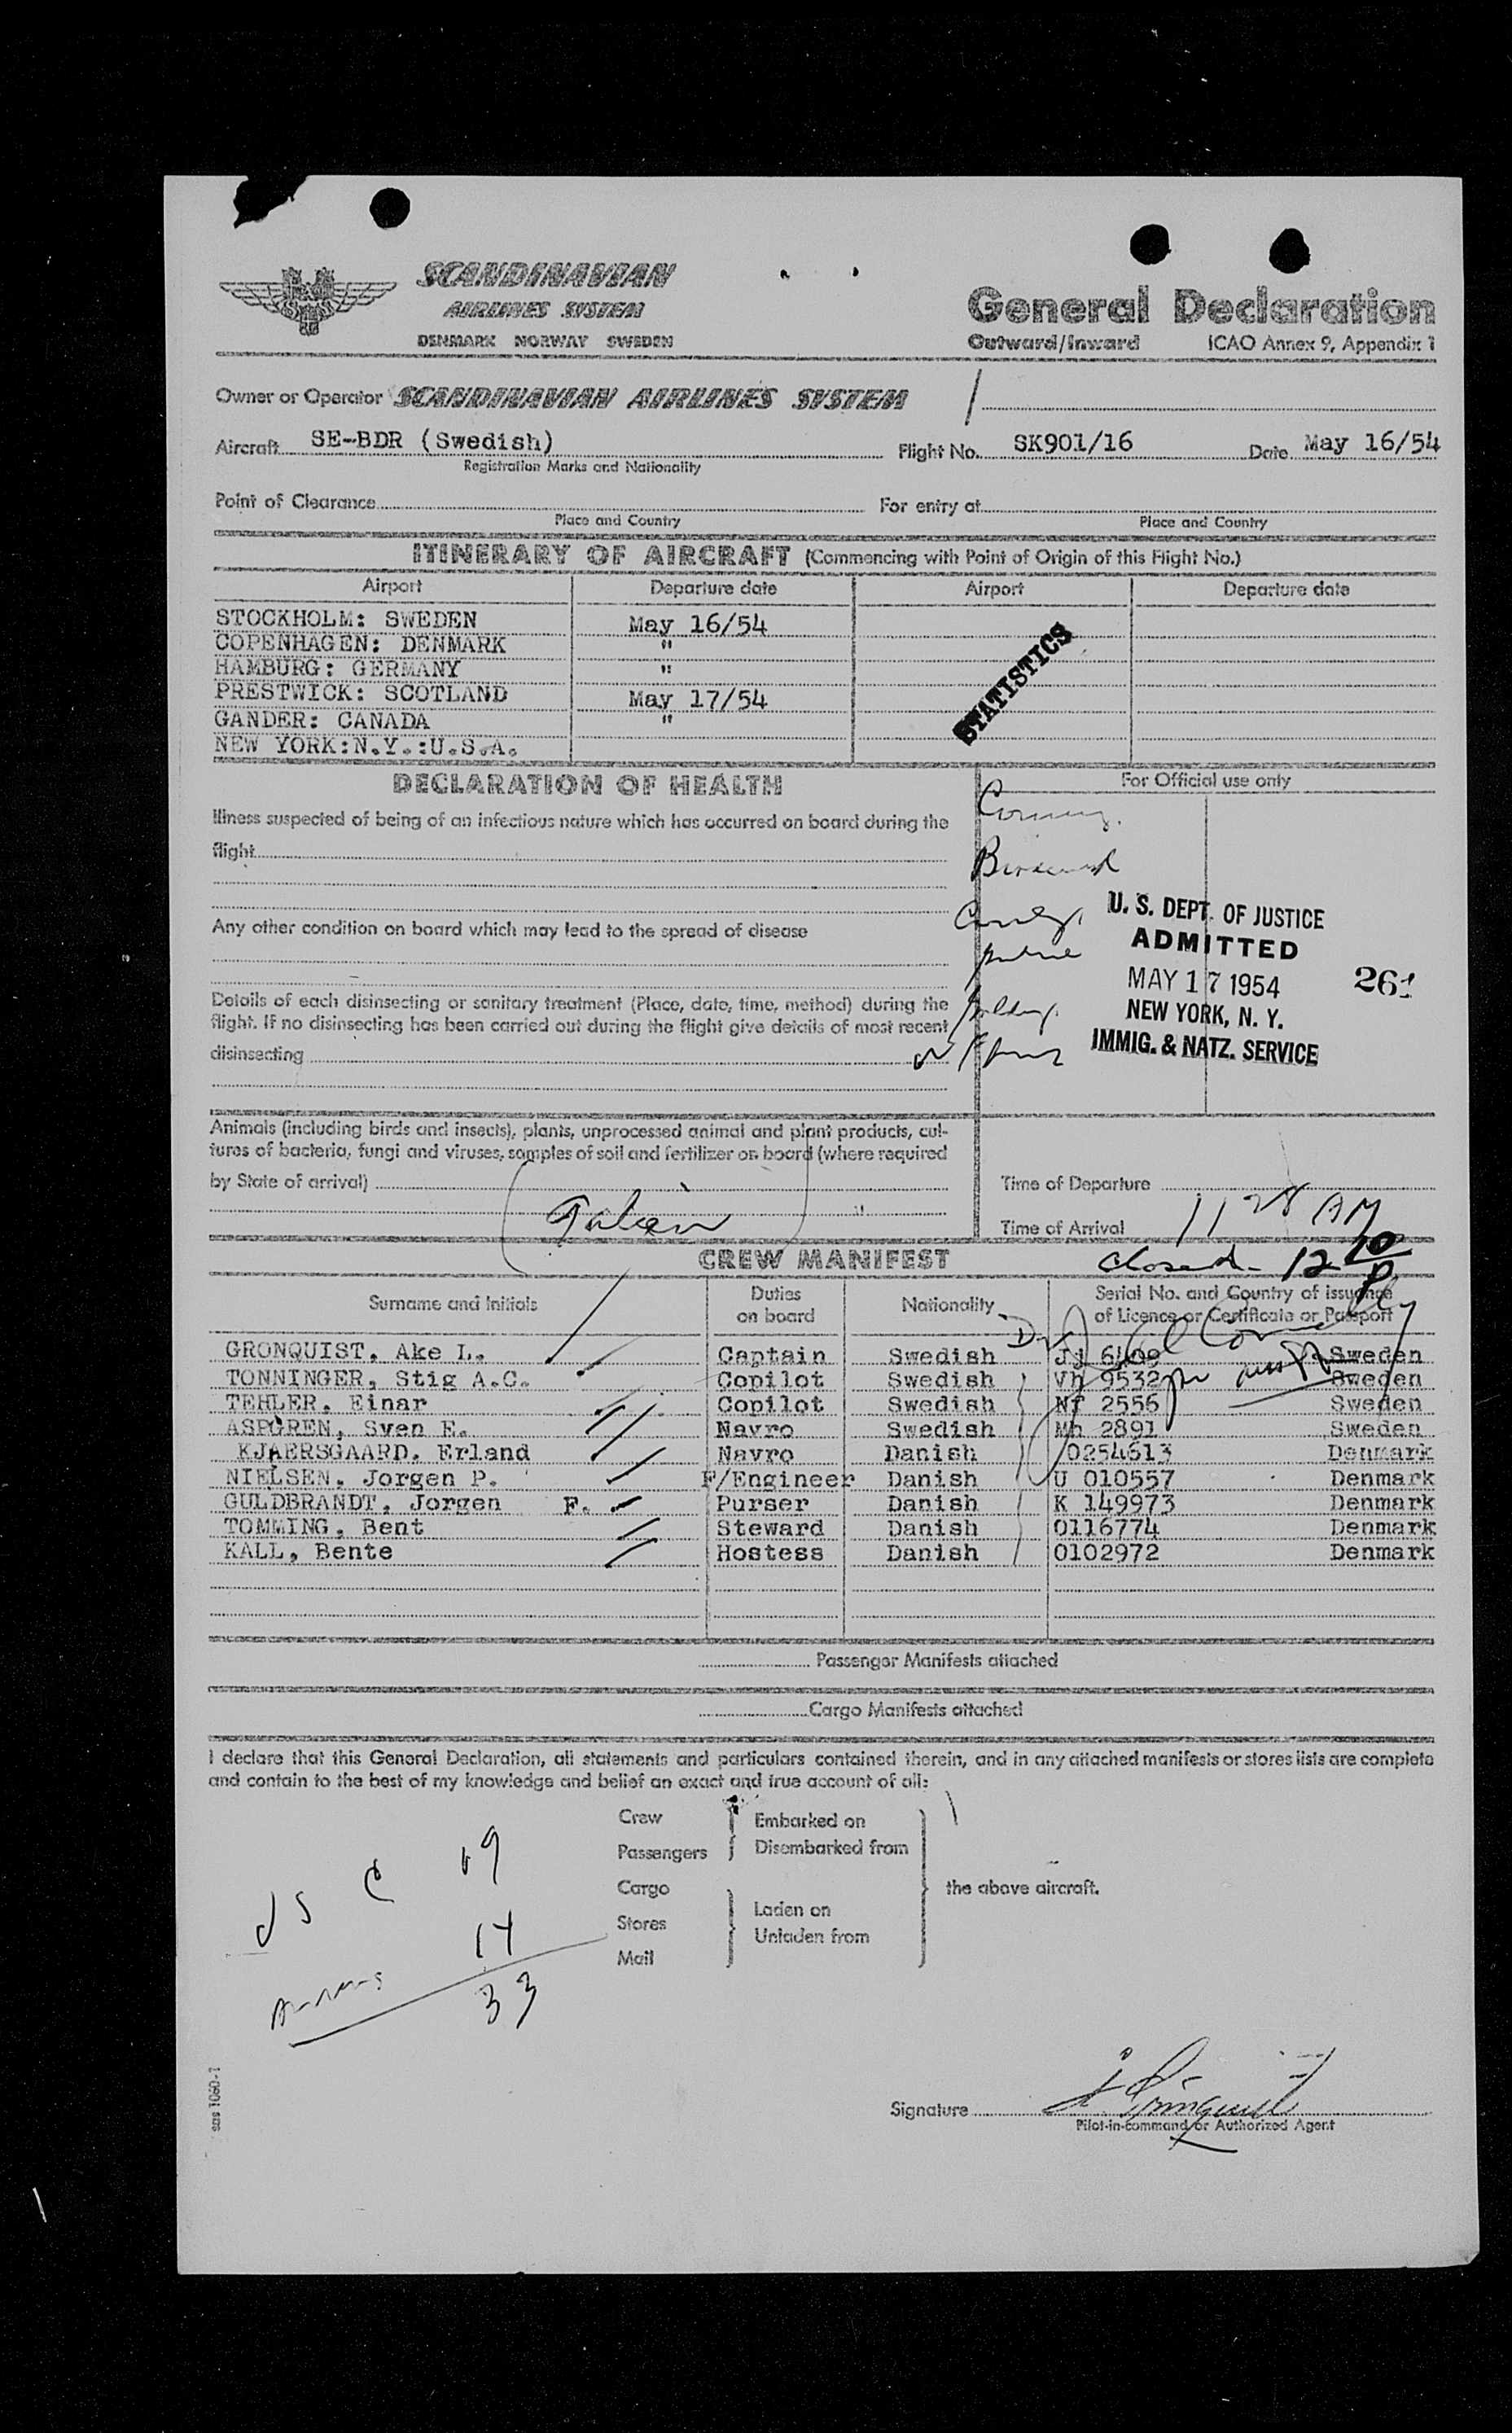 SCANDINAVIAN
AIRLINES SYSTEM
DENMARK NORWAY SWEDEN
General Declaration
Outward/Inward ICAO Annex 9, Appendix 1
Owner or Operator SCANDINAVIAN AIRLINES SYSTEM
Aircraft SE-BDR (Swedish) Flight No. SK901/16 Date May 16/54
Registration Marks and Nationality
Point of Clearance For entry at
Place and Country Place and Country
ITINERARY OF AIRCRAFT (Commencing with Point of Origin of this Flight No.)
Airport Departure date Airport Departure date
STOCKHOLM: SWEDEN May 16/54
COPENHAGEN: DENMARK "
HAMBURG: GERMANY "
PRESTWICK: SCOTLAND May 17/54
GANDER: CANADA "
NEW YORK:N.Y.:U.S.A.
STATISTICS
DECLARATION OF HEALTH
For Official use only
Illness suspected of being of an infectious nature which has occurred on board during the
flight
Any other condition on board which may lead to the spread of disease
Details of each disinsecting or sanitary treatment (Place, date, time, method) during the
flight. If no disinsecting has been carried out during the flight give details of most recent
disinsecting
U. S. DEPT. OF JUSTICE
ADMITTED
MAY 17 1954
NEW YORK, N. Y.
IMMIG. & NATZ. SERVICE
261
Animals (including birds and insects), plants, unprocessed animal and plant products, cul-
tures of bacteria, fungi and viruses, samples of soil and fertilizer on board (where required
by State of arrival)
Time of Departure
Time of Arrival 11 28 AM
Closed - 12 10 P
CREW MANIFEST
Surname and Initials Duties on board Nationality Serial No. and Country of issuance of Licence or Certificate or Passport
GRONQUIST, Ake L. Captain Swedish Sweden
TONNINGER, Stig A.C. Copilot Swedish Vh 9532 Sweden
TEHLER, Einar Copilot Swedish Nf 2556 Sweden
ASPGREN, Sven E. Navro Swedish Mh 2891 Sweden
KJAERSGAARD, Erland Navro Danish 0254613 Denmark
NIELSEN, Jorgen P. F/Engineer Danish U 010557 Denmark
GULDBRANDT, Jorgen F. Purser Danish K 149973 Denmark
TOMMING, Bent Steward Danish 0116774 Denmark
KALL, Bente Hostess Danish 0102972 Denmark
Passenger Manifests attached
Cargo Manifests attached
I declare that this General Declaration, all statements and particulars contained therein, and in any attached manifests or stores lists are complete
and contain to the best of my knowledge and belief an exact and true account of all:
Crew
Passengers
Embarked on
Disembarked from
Cargo
Stores
Mail
Laden on
Unladen from
the above aircraft.
US C 19
14
33
Signature
Pilot-in-command or Authorized Agent
sas 1060-1